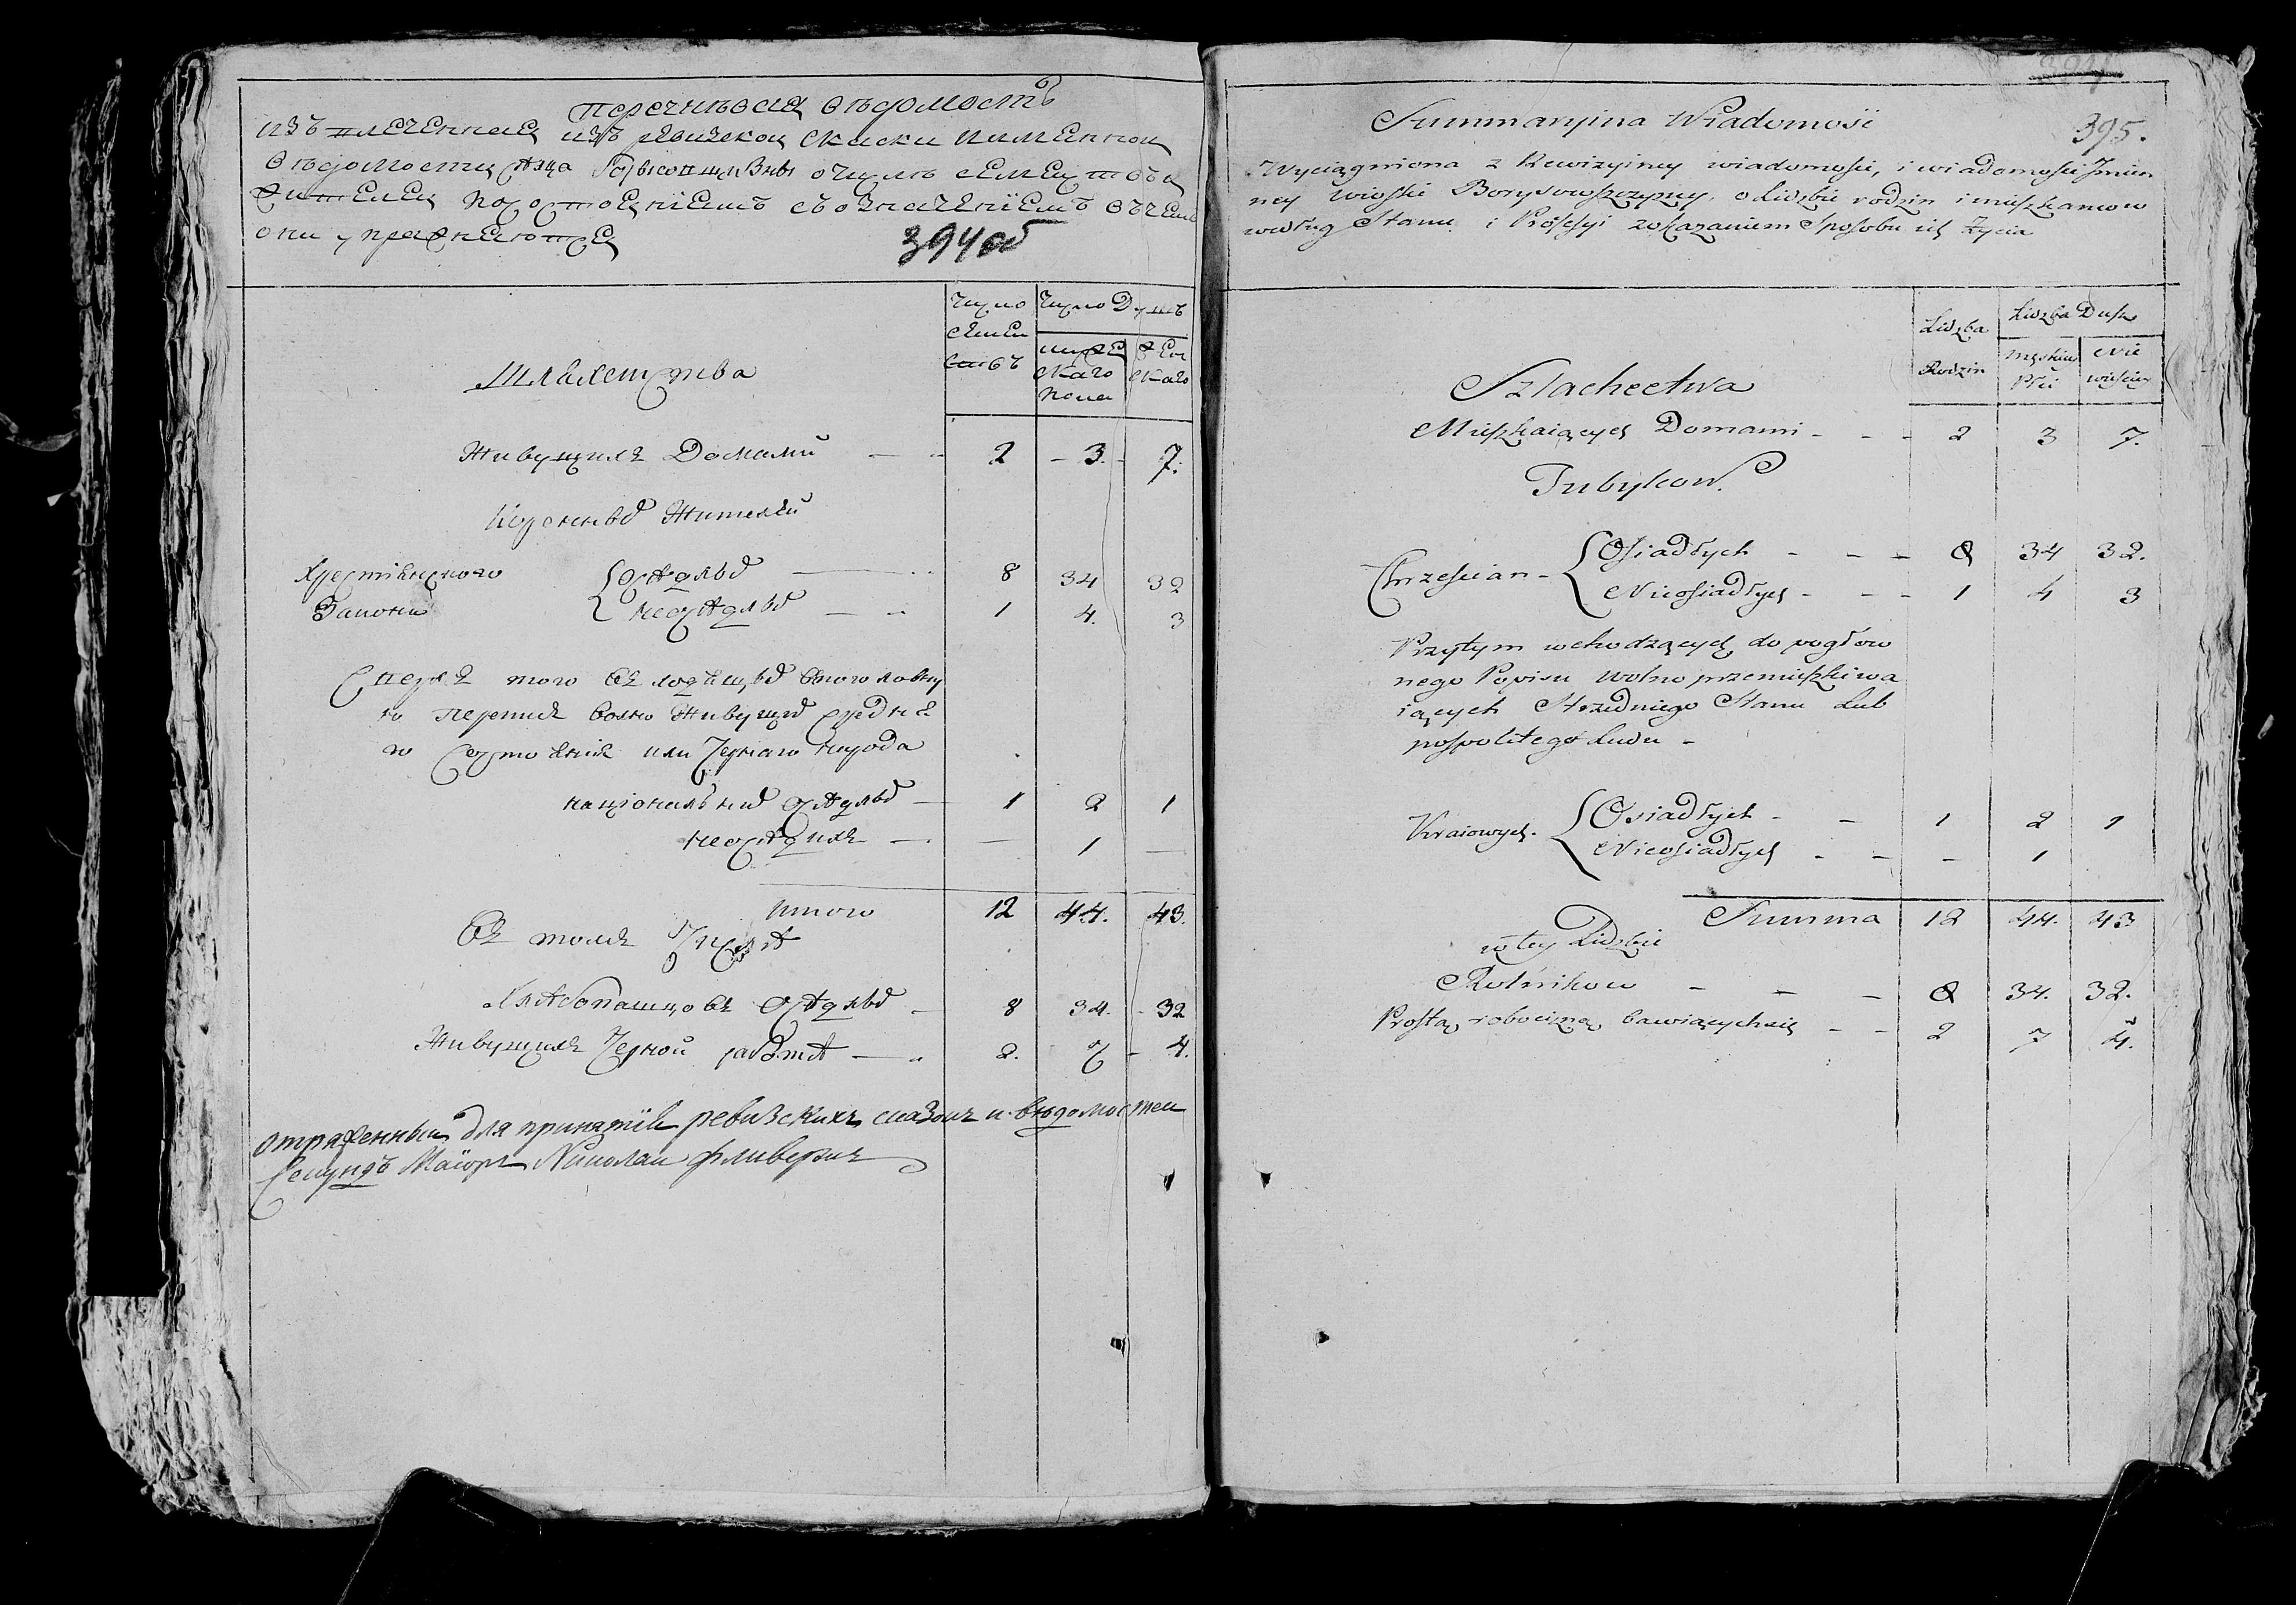 перечневая вѣдомость
извлеченная изъ ревизской скаски и имянной
вѣдомости о числѣ семействъ и
жителей по состоянiемъ съ означенiемъ въ чемъ
они упражняются
394 об
число семействъ
число Душъ
мужескаго пола
женскаго
Шляхетства
Живущихъ Домами 2 3. 7.
Коренныхъ Жителей
Христiянского Закона
Осѣдлыхъ 8 34 32
неосѣдлыхъ 1 4. 3
Сверхъ того входящихъ в поголовну
ю перепись волно живущихъ средня
го состоянiя или Чернаго народа
нацiональныхъ осѣдлыхъ 1 2 1
неосѣдлихъ — 1 —
итого 12 44. 43.
Въ томъ Числѣ
Хлѣбопашцовъ Осѣдлыхъ 8 34. 32
Живущихъ Черной работѣ 2. 7 4.
отряженный для принятiя ревизскихъ сказокъ и вѣдомостей
Секундъ Маiоръ Николай
395.
Summaryina Wiadomość
Wyciągniona z Rewizyiney wiadomości, i wiadomości Jmien
ney wioski Borysowszczyzny, o Liczbie rodzin i mieszkancow
według Stanu i Professyi z okazaniem Sposobu ich Życia
Liczba Rodzin
Liczba Dusz
męskiey Płci
Nie wieściey
Szlachectwa
Mieszkaiących Domami - - - 2 3 7.
Tubylcow.
Chrześcian - Osiadłych - - - 8 34 32.
Nieosiadłych - - - 1 4 3
Przytym wchodzących do pogłow
nego Popisu wolno przemieszkiwa
iących Srzedniego Stanu Lub
pospolitego Ludu -
Kraiowych. Osiadłych - - 1 2 1
Nieosiadłych - - - 1
Summa 12 44. 43
w tey Liczbie
Rolnikow - - - 8 34. 32.
Prostą robocizną bawiących się - - 2 7 4.